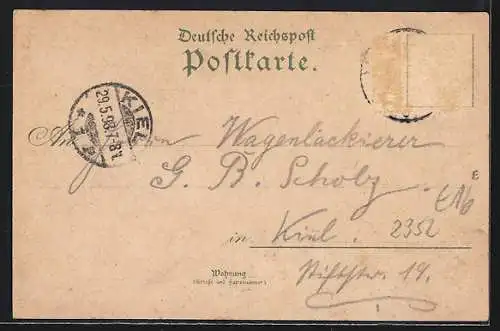 Deutsche Reichspost
Postkarte.
KIEL
29.5.98.7-8V.
* 1 *
An Herrn Wagenlackierer
G. B. Scholz
E
in Kiel. 2352
Wohnung
(Straße und Hausnummer)
Stiftstr. 19.